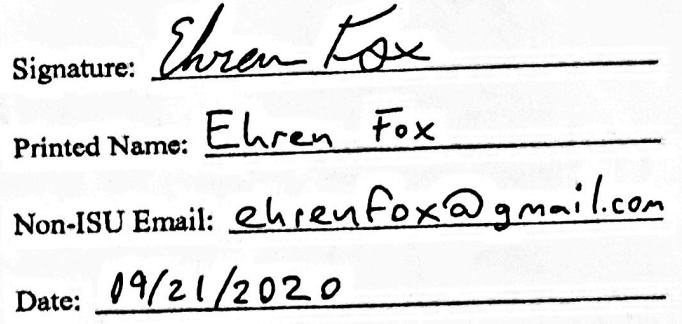 Signature: Ehren Fox
Printed Name: Ehren Fox
Non-ISU Email: ehrenfox@gmail.com
Date: 09/21/2020